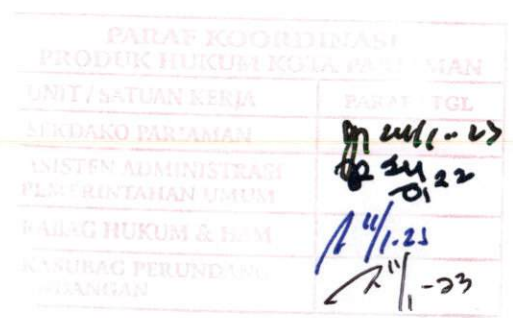 PARAF KOORDINASI
PRODUK HUKUM KOTA PARIAMAN
UNIT / SATUAN KERJA PARAF TGL
SEKDAKO PARIAMAN
ASISTEN ADMINISTRASI
PEMERINTAHAN UMUM
KABAG HUKUM & HAM 11/1-23
KASUBAG PERUNDANG
UNDANGAN 11/1-23